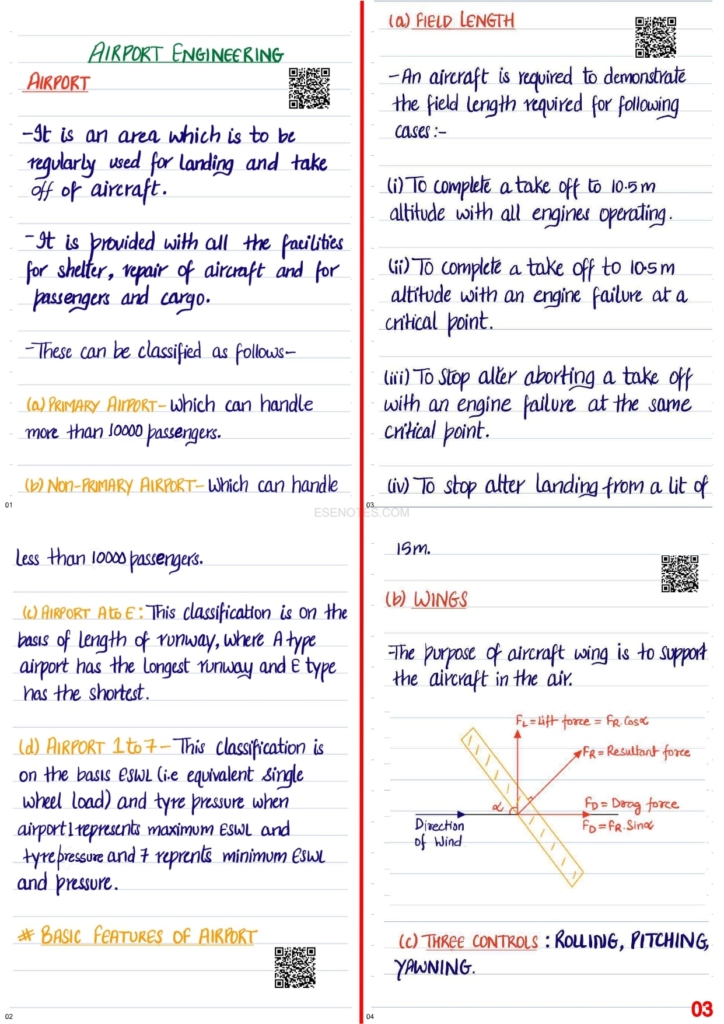 AIRPORT ENGINEERING
AIRPORT
-It is an area which is to be
regularly used for landing and take
off of aircraft.
-It is provided with all the facilities
for shelter, repair of aircraft and for
passengers and cargo.
-These can be classified as follows-
(a) PRIMARY AIRPORT- Which can handle
more than 10000 passengers.
(b) NON-PRIMARY AIRPORT- Which can handle
01
less than 10000 passengers.
(c) AIRPORT A to E: This classification is on the
basis of length of runway, where A type
airport has the longest runway and E type
has the shortest.
(d) AIRPORT 1 to 7 - This classification is
on the basis ESWL (i.e equivalent single
wheel load) and tyre pressure when
airport 1 represents maximum ESWL and
tyre pressure and 7 reprents minimum ESWL
and pressure.
# BASIC FEATURES OF AIRPORT
02
(a) FIELD LENGTH
-An aircraft is required to demonstrate
the field length required for following
cases:-
(i) To complete a take off to 10.5 m
altitude with all engines operating.
(ii) To complete a take off to 10.5 m
altitude with an engine failure at a
critical point.
(iii) To Stop alter aborting a take off
with an engine failure at the same
critical point.
(iv) To stop alter landing from a lit of
03
ESENOTES.COM
15m.
(b) WINGS
-The purpose of aircraft wing is to support
the aircraft in the air.
FL = Lift force = FR.Cosα
FR = Resultant force
α
FD = Drag force
FD = FR.Sinα
Direction
of Wind
(c) THREE CONTROLS : ROLLING, PITCHING,
YAWNING.
04
03